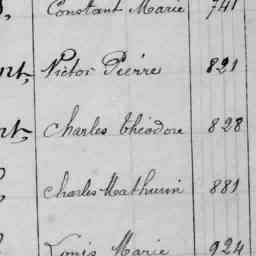 Constant Marie 741
nt, Victor Pierre 821
nt, Charles théodore 828
Charles Mathurin 881
Louis Marie 924